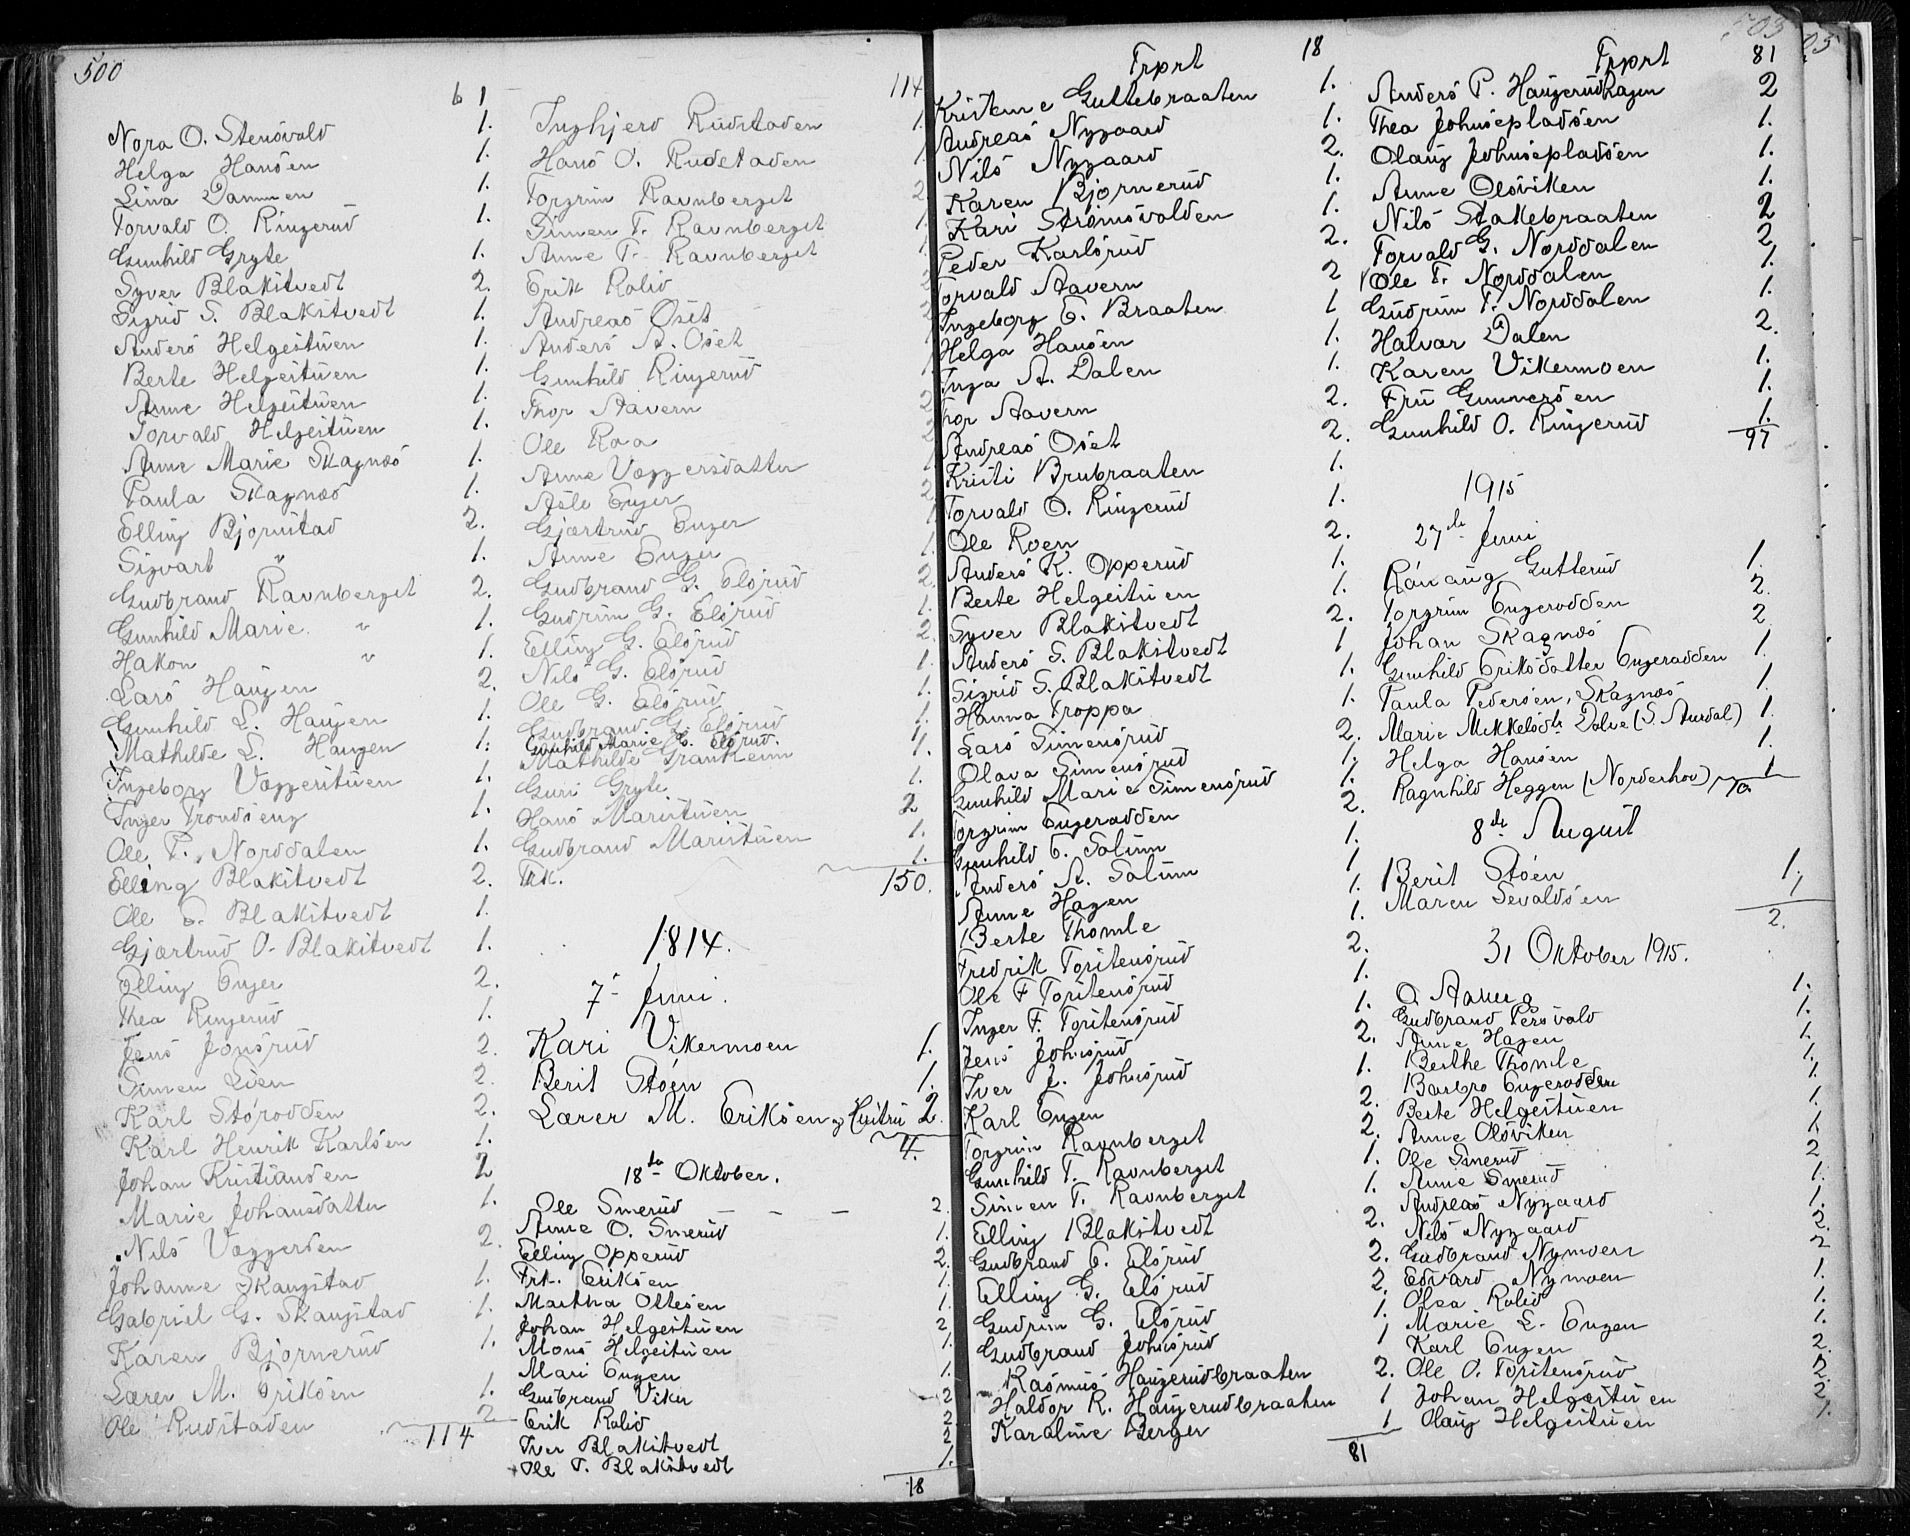 500
61
Nora O. Stensvold 1.
Helga Hansen 1.
Lina Dammen 1.
Torvald O. Ringerud 1.
Gunhild Gryte 1.
Syver Blakstvedt 2.
Sigrid S. Blakstvedt 1.
Anders Helgestuen 1.
Berte Helgestuen 1.
Anne Helgestuen 1.
Torvald Helgestuen 1.
Anne Marie Skagnæs 1.
Paula Skagnæs 1.
Elling Bjørnstad 2.
Sigvart " 1.
Gudbrand Ravnberget 2.
Gunhild Marie " 1.
Hakon " 1.
Lars Haugen 2.
Gunhild L. Haugen 1.
Mathilde L. Haugen 1.
Ingeborg Væggerstuen 1.
Inger Trondseng 1.
Ole T. Norddalen 1.
Elling Blakstvedt 2.
Ole E. Blakstvedt 1.
Gjærtrud O. Blakstvedt 1.
Elling Enger 2.
Thea Ringerud 1.
Jens Jonsrud 2.
Simen Lien 2.
Karl Størodden 2.
Karl Henrik Karlsen 1.
Johan Kristiansen 2
Marie Johansdatter 1.
Nils Væggersen 2.
Johanne Skaugstad 1.
Gabriel G. Skaugstad 1.
Karen Bjørnerud 1.
Lærer M. Eriksen 1.
Ole Rudstaden 2
114
114
Ingbjerd Rudstaden 1.
Hans O. Rudstaden 1
Torgrim Ravnberget 2
Simen T. Ravnberget 1
Anne T. Ravnberget 1
Erik Rolid 2
Andreas Oset 2
Anders A. Oset 1
Gunhild Ringerud 1
Thor Aavern 2
Ole Roa 2
Anne Væggersdatter 1
Asle Enger 2
Gjærtrud Enger 1
Anne Enger 1.
Gudbrand G. Elsrud 2
Gudrun G. Elsrud 1.
Elling G. Elsrud 2
Nils G. Elsrud 1.
Ole G. Elsrud 1.
Gudbrand G. Elsrud 1
Gunhild Marie G. Elsrud. 1.
Mathilde Granheim
Guri Gryte 1.
Hans Maristuen 2
Gudbrand Maristuen 1.
Trk. 1.
150.
1814.
7- Juni.
Kari Vikermoen 1.
Berit Støen 1.
Lærer M. Eriksen og Hustru 2
4.
18de Oktober.
Ole Smerud - - - 2.
Anne O. Smerud 1.
Elling Opperud 2.
Frk. Eriksen 1.
Martha Ottesen 1.
Johan Helgestuen 2
Mons Helgestuen 1.
Mari Engen 1.
Gudbrand Viker 2
Erik Rolid 2
Iver Blakstvedt 2
Ole T. Blakstvedt 1.
18
Trprt 18
Kristine Guttebraaten 1.
Andreas Nygaard 1.
Nils Nygaard 2.
Karen Bjørnerud 1.
Kari Strømsvolden 1.
Peder Karlsrud 2.
Torvald Aavern 2
Ingeborg E. Braaten 1
Helga Hansen 1.
Inga A. Dalen 1.
Thor Aavern 2.
Andreas Oset 2.
Kristi Brubraaten 1.
Torvald O. Ringerud 1.
Ole Roen 2.
Anders K. Opperud 1.
Berte Helgestuen 1.
Syver Blakstvedt 2.
Anders S. Blakstvedt 1
Sigrid S. Blakstvedt 1.
Hanna Troppa 1.
Lars Simensrud 2.
Olava Simensrud 1.
Gunhild Marie Simensrud 1.
Torgrim Engerodden 2.
Gunhild T. Solum 1.
Anders A. Solum 1
Anne Hagen 1.
Berte Thomle 1.
Fredrik Torstensrud 2.
Ole F Torstensrud 1.
Inger F. Torstensrud 1.
Jens Johnsrud 2.
Iver J. Johnsrud 1.
Karl Engen 2.
Torgrim Ravnberget 2.
Gunhild T. Ravnberget 1.
Simen T. Ravnberget 1.
Elling Blakstvedt 2.
Gudbrand E. Elsrud 2.
Elling G. Elsrud 2.
Gudrun G. Elsrud 1.
Gudbrand Johnsrud 1
Rasmus Haugerudbraaten 2.
Haldor R. Haugerudbraaten 1
Karoline Berger 1
81
503
Trprt 81
Anders P. Haugerudhagen 2
Thea Johnsepladsen 1.
Olaug Johnsepladsen 1.
Anne Olsviken 1.
Nils Stakebraaten 2
Torvald G. Norddalen 2
Ole T. Norddalen 1.
Gudrun T. Norddalen 1.
Halvar Dalen 2.
Karen Vikermoen 1.
Fru Gunnersen 1.
Gunhild O. Ringerud 1.
97
1915
27de Juni
Rønnaug Gutterud 1.
Torgrim Engerodden 2.
Johan Skagnæs 2
Gunhild Eriksdatter Engerodden 1.
Paula Pedersen, Skagnæs 1.
Marie Mikkelsdtr Dolve (S. Aurdal) 1.
Helga Hansen 1.
Ragnhild Heggen (Norderhov) 1
10.
8de August
Berit Støen 1.
Maren Sevaldsen 1
2.
31 Oktober 1915.
O. Aaberg 1.
Gudbrand Persvold 1.
Anne Hagen 1.
Berthe Thomle 1.
Barbro Engerodden 1.
Berte Helgestuen 1.
Anne Olsviken 1.
Ole Smerud 2
Anne Smerud 1.
Andreas Nygaard 1.
Nils Nygaard 2.
Gudbrand Nymoen 2
Edvard Nymoen 1.
Olea Rolid 1.
Marie L. Engen 1.
Karl Engen 2.
Ole O. Torstensrud 2.
Johan Helgestuen 2.
Olaug Helgestuen 1.